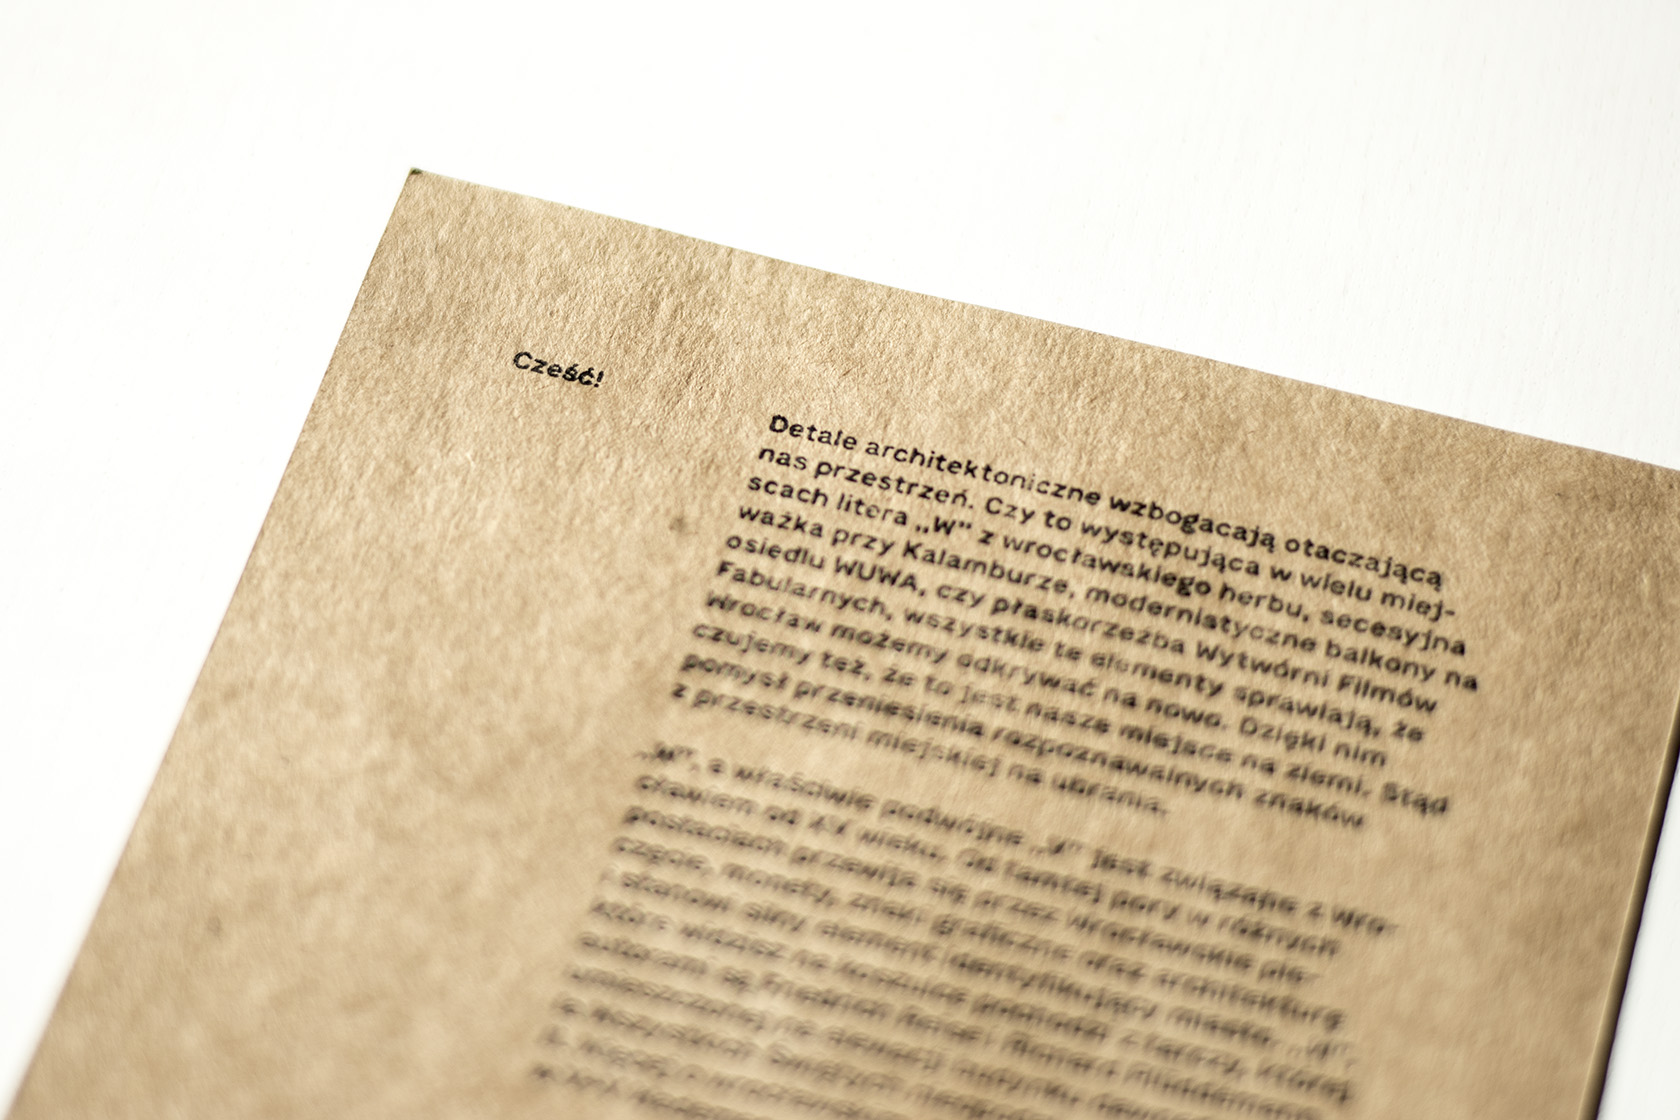 Cześć!
Detale architektoniczne wzbogacają otaczającą
nas przestrzeń. Czy to występująca w wielu miej-
scach litera „W” z wrocławskiego herbu, secesyjna
ważka przy Kalamburze, modernistyczne balkony na
osiedlu WUWA, czy płaskorzeźba Wytwórni Filmów
Fabularnych, wszystkie te elementy sprawiają, że
Wrocław możemy odkrywać na nowo. Dzięki nim
czujemy też, że to jest nasze miejsce na ziemi. Stąd
pomysł przeniesienia rozpoznawalnych znaków
z przestrzeni miejskiej na ubrania.
„W”, a właściwie podwójne „V” jest związane z Wro-
cławiem od XV wieku. Od tamtej pory w różnych
postaciach przewija się przez wrocławskie pie-
częcie, monety, znaki graficzne oraz architekturę
i stanowi silny element identyfikujący miasto. „W”,
które widzisz na koszulce pochodzi z tarczy, której
autorami są Friedrich
umieszczonej na elewacji